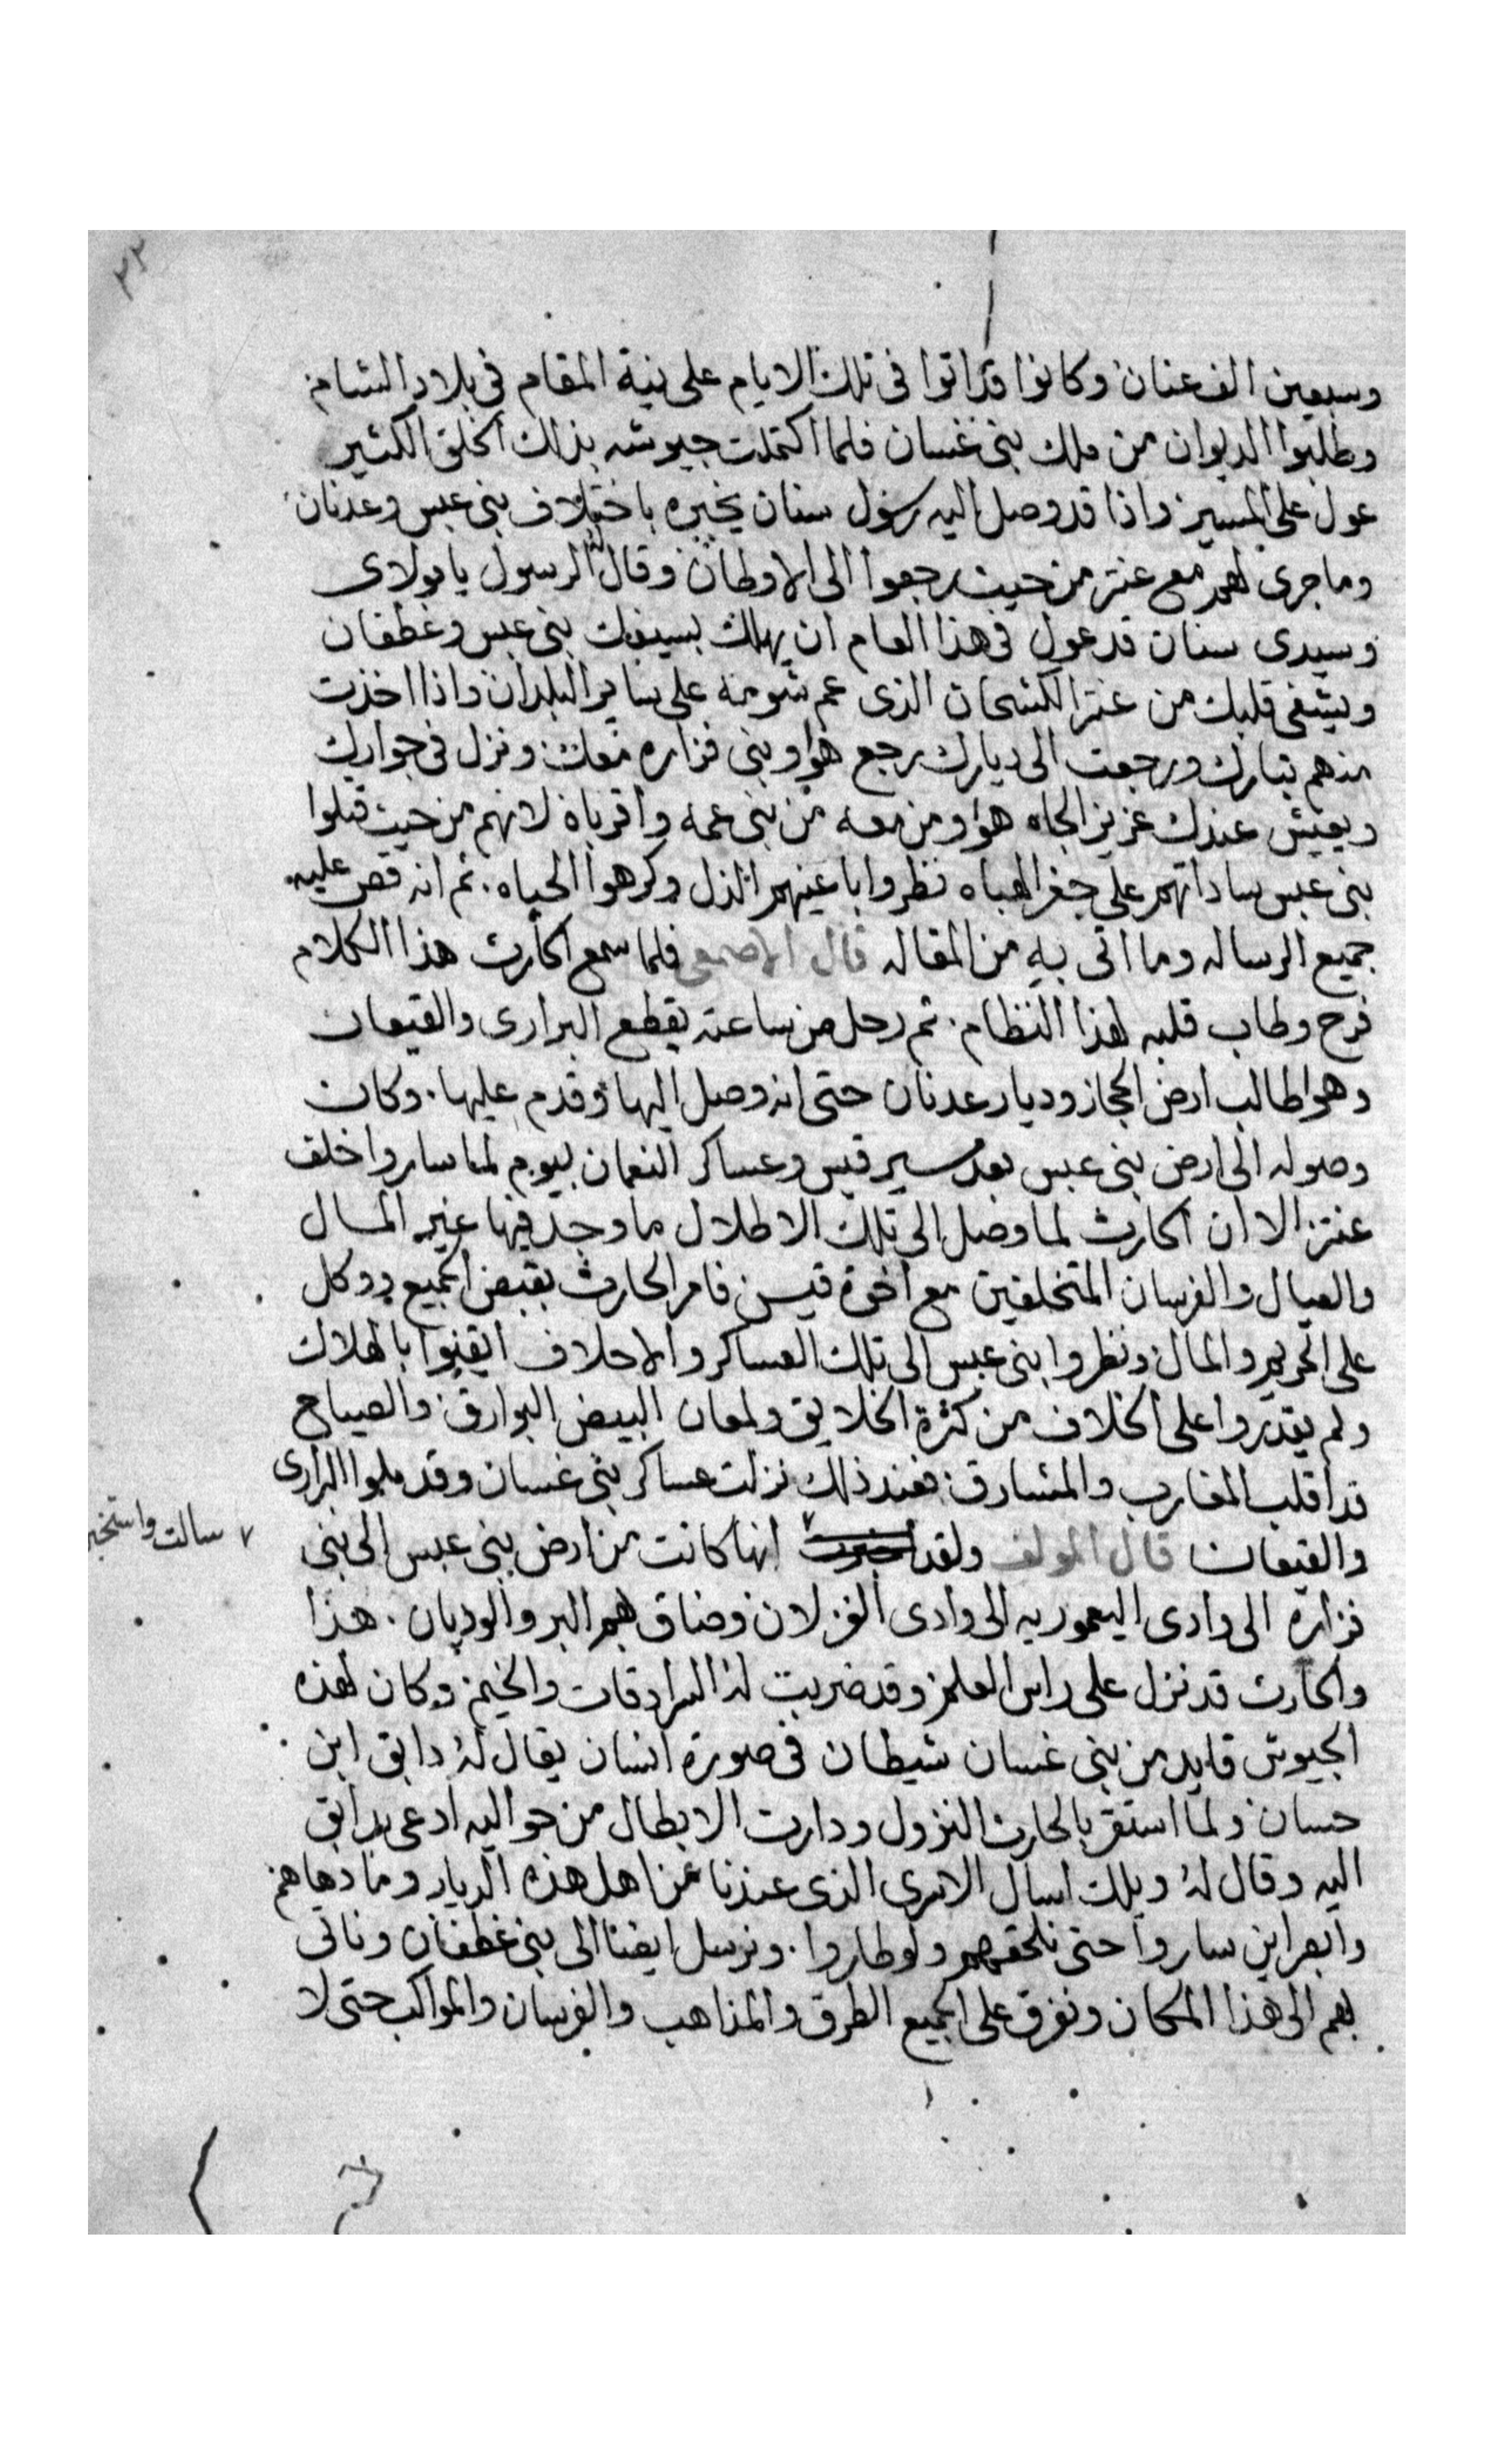 ٣٢
وسبعين الف عنان وكانوا قد اتوا فى تلك الايام على نية المقام فى بلاد الشام
وطلبوا الديوان من ملك بنى غسان فلما اكتملت جيوشه بذلك الخلق الكثير
عول على المسير واذا قد وصل اليه رسول سنان يخبره باختلاف بنى عبس وعدنان
وما جرى لهم مع عنتر من حيث رجعوا الى الاوطان وقال له الرسول يا مولاى
وسيدى سنان قد عول فى هذا العام ان يهلك بسيفك بنى عبس وغطفان
ويشفى قلبك من عنتر الكشحان الذى عم شومه على ساير البلدان واذا اخذت
منهم بتارك ورجعت الى ديارك رجع هوا وبنى فزاره معك ونزل فى جوارك
ويعيش عندك عزيز الجاه هوا ومن معه من بنى عمه واقرباة لانهم من حيث قتلوا
بنى عبس ساداتهم على جفر الهباه نظروا باعينهم الذل وكرهوا الحياه. ثم انه قص عليه
جميع الرساله وما اتى به من المقاله قال الاصمعى فلما سمع الحارث هذا الكلام
فرح وطاب قلبه لهذا النظام. ثم رحل من ساعته يقطع البرارى والقيعان
وهوا طالب ارض الحجاز وديار عدنان حتى انه وصل اليها وقدم عليها. وكان
وصوله الى ارض بنى عبس بعد مسير قيس وعساكر النعمان بيوم لما ساروا خلف
عنتر الا ان الحارث لما وصل الى تلك الاطلال ما وجد فيها غير المال
والعيال والفرسان المتخلفين مع اخوة قيس فامر الحارث بقبض الجميع ووكل
على الحريم والمال ونظروا بنى عبس الى تلك العساكر والاحلاف ايقنوا بالهلاك
ولم يقدروا على الخلاف من كثرة الخلايق ولمعان البيض البوارق والصياح
قد اقلب المغارب والمشارق فعند ذلك نزلت عساكر بنى غسان وقد ملوا البرارى
والقيعان قال المولف ولقد اخبرت انها كانت من ارض بنى عبس الى بنى
٧ سالت واستخبر
فزاره الى وادى اليعموريه الى وادى الغزلان وضاق بهم البر والوديان. هذا
والحارث قد نزل على راس العلم وقد ضربت له السرادقات والخيم وكان لهذه
الجيوش قايد من بنى غسان شيطان فى صورة انسان يقال له دابق ابن
حسان ولما استقر بالحارث النزول ودارت الابطال من حواليه ادعى بدابق
اليه وقال له ويلك اسال الاسرى الذى عندنا عن اهل هذه الديار وما دهاهم
وابصر اين ساروا حتى نلحقهم ولو طاروا. ونرسل ايضا الى بنى غطفان وناتى
بهم الى هذا المكان ونفرق على الجميع الطرق والمذاهب والفرسان والمواكب حتى لا